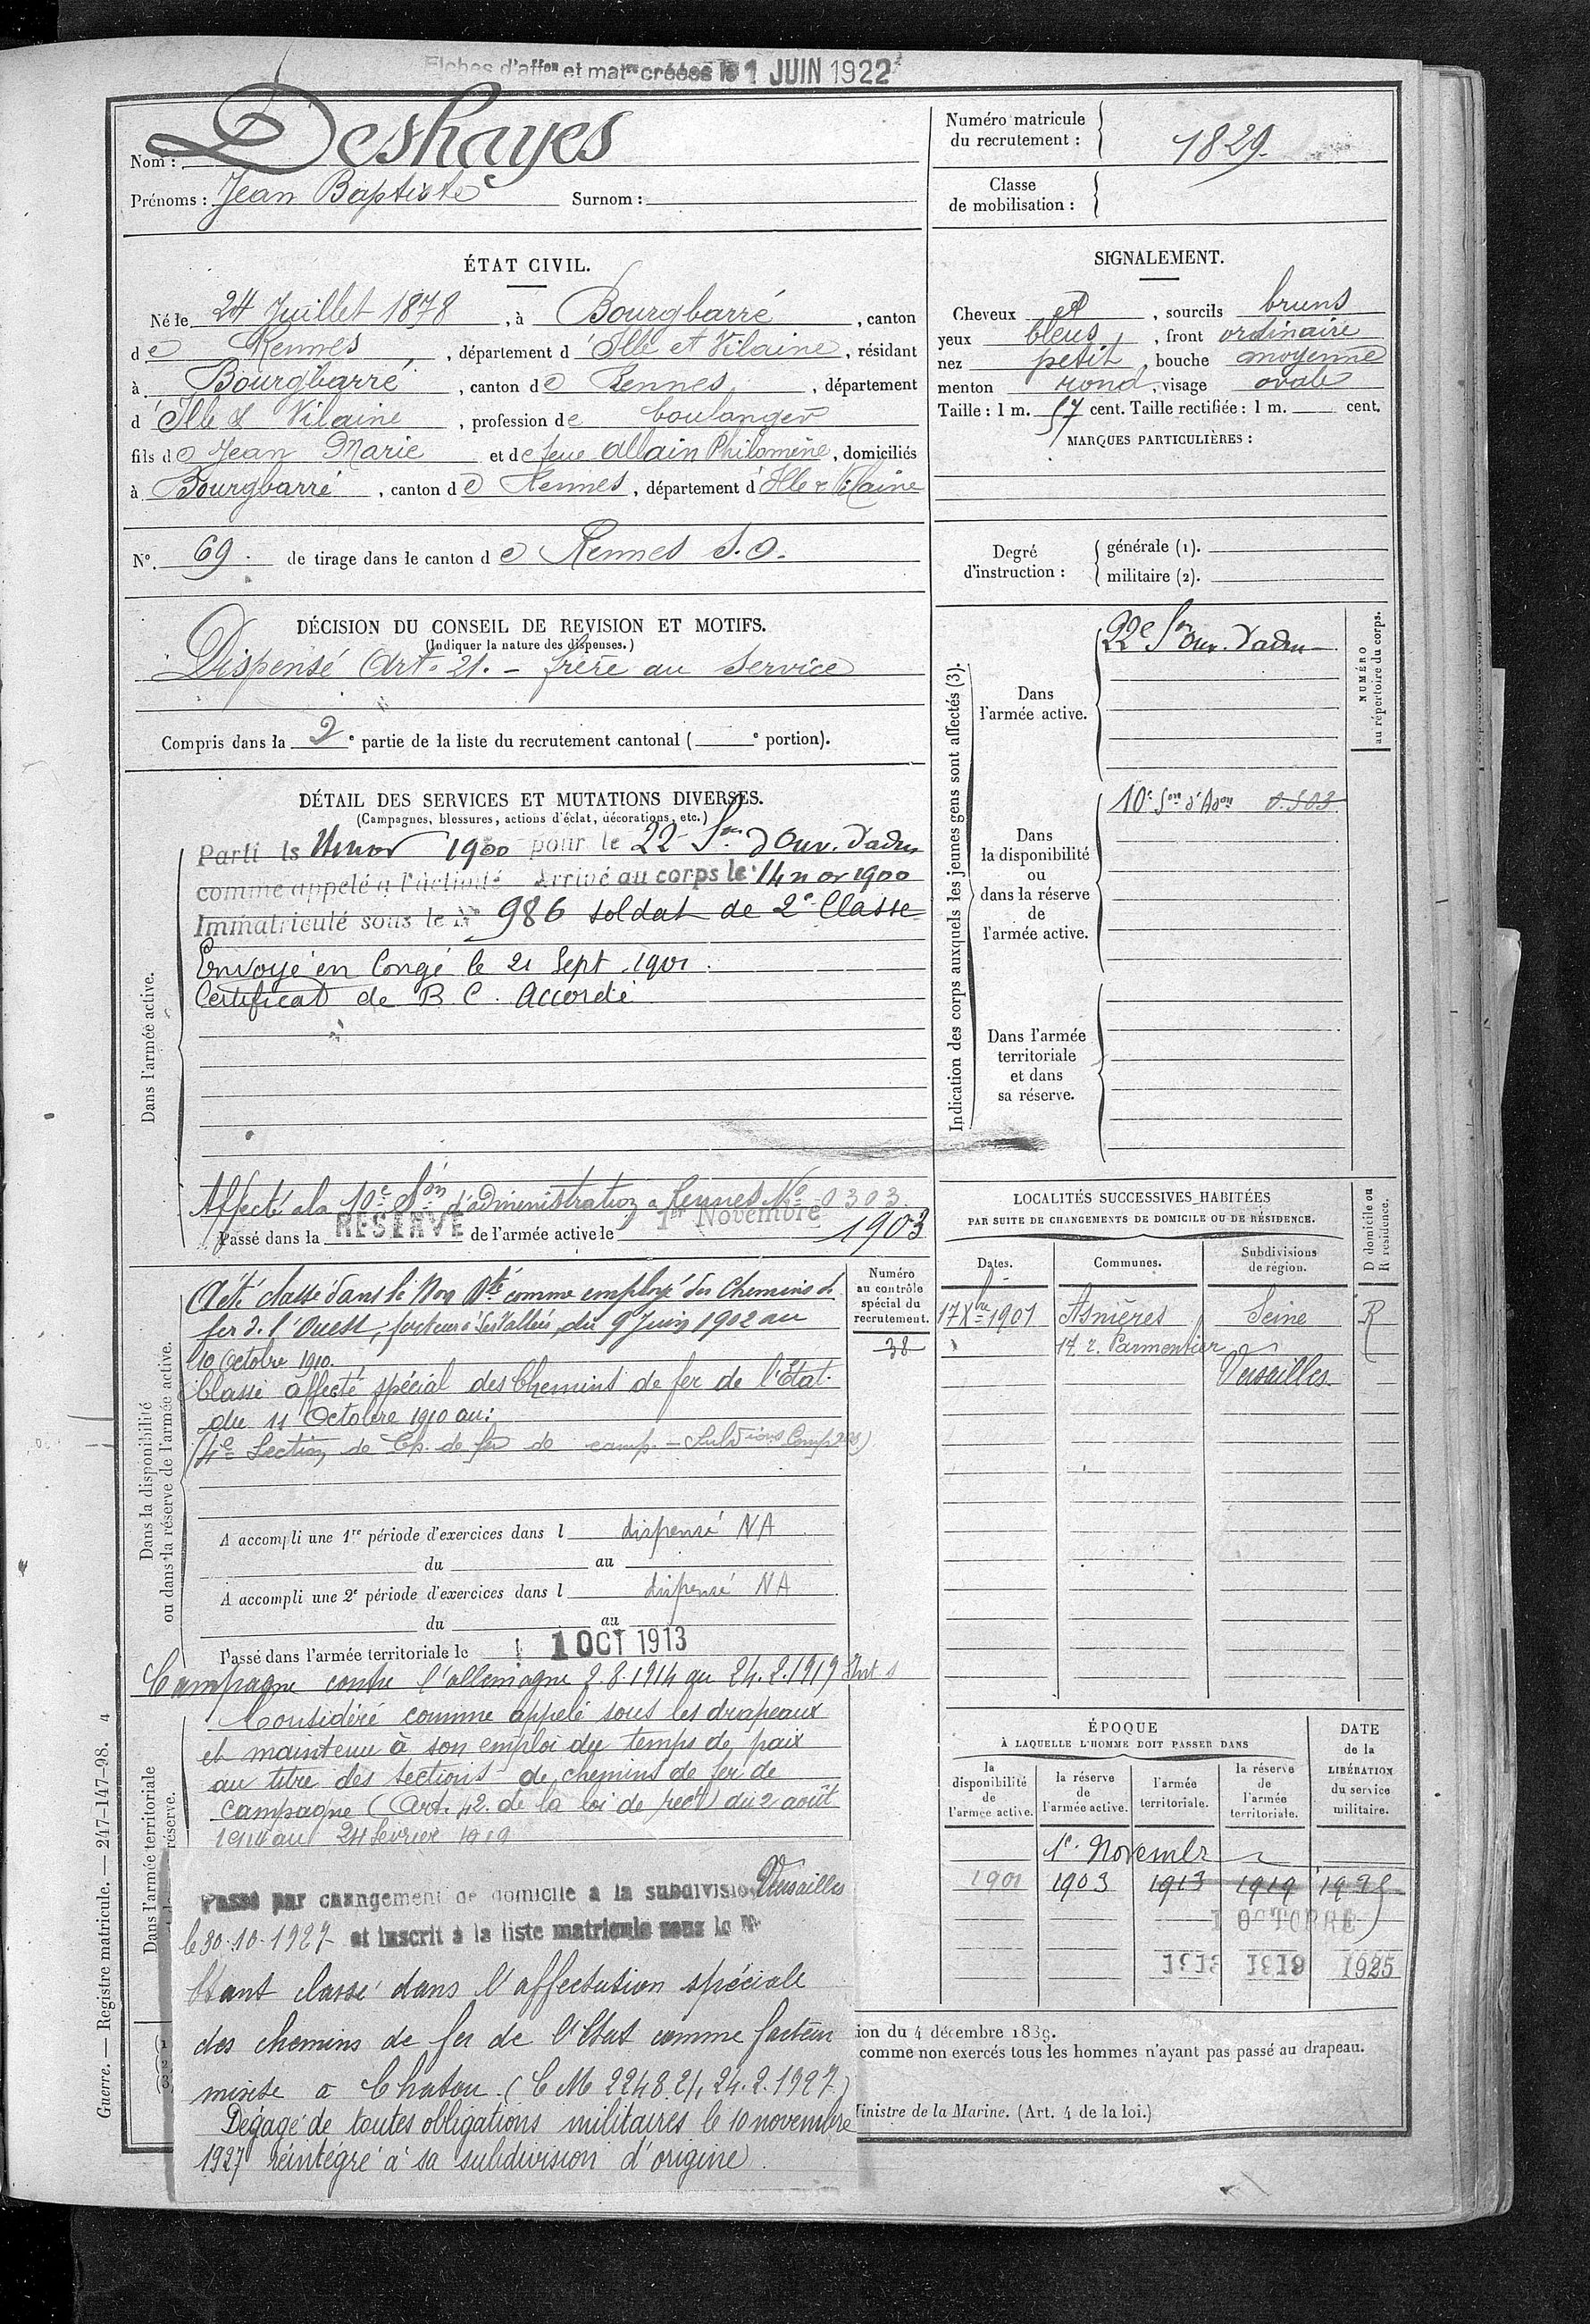 Fiches d'affon et matre créées le 1 JUIN 1922
Nom : Deshayes
Prénoms : Jean Baptiste Surnom :
Numéro matricule du recrutement : 1829.
Classe de mobilisation :
ÉTAT CIVIL.
Né le 24 Juillet 1878, à Bourgbarré, canton
de Rennes, département d'Ille et Vilaine, résidant
à Bourgbarré, canton de Rennes, département
d'Ille & Vilaine, profession de boulanger
fils de Jean Marie et de feue Allain Philomène, domiciliés
à Bourgbarré, canton de Rennes, département d'Ille & Vilaine
SIGNALEMENT.
Cheveux et, sourcils bruns
yeux bleus, front ordinaire
nez petit, bouche moyenne
menton rond, visage ovale
Taille : 1 m. 57 cent. Taille rectifiée : 1 m. cent.
MARQUES PARTICULIÈRES :
No. 69. de tirage dans le canton de Rennes S.O.
Degré d'instruction :
générale (1).
militaire (2).
DÉCISION DU CONSEIL DE REVISION ET MOTIFS.
(Indiquer la nature des dispenses.)
Dispensé Art. 21. - frère au service
Compris dans la 2e partie de la liste du recrutement cantonal ( e portion).
Indication des corps auxquels les jeunes gens sont affectés (3).
NUMÉRO au répertoire du corps.
Dans l'armée active.
22e Son Ouv. d'adm
Dans la disponibilité ou dans la réserve de l'armée active.
10e Son d'Adon 0.503
Dans l'armée territoriale et dans sa réserve.
DÉTAIL DES SERVICES ET MUTATIONS DIVERSES.
(Campagnes, blessures, actions d'éclat, décorations, etc.)
Dans l'armée active.
Parti le 14 nov 1900 pour le 22e Son d'Ouv. d'adm
comme appelé à l'activité Arrivé au corps le 14 nov 1900
Immatriculé sous le No 986 soldat de 2e Classe
Envoyé en Congé le 21 Sept. 1901.
Certificat de B. C. Accordé
Affecté à la 10e Son d'administration à Rennes No 0303
Passé dans la RESERVE de l'armée active le 1er Novembre 1903
Dans la disponibilité ou dans la réserve de l'armée active.
Numéro au contrôle spécial du recrutement.
38
A été classé dans le Non Dté comme employé des Chemins de
fer de l'Ouest, facteur à Les Vallées, du 9 Juin 1902 au
10 Octobre 1910.
Classé affecté spécial des Chemins de fer de l'État
du 11 Octobre 1910 au :
(4e Section de Ch. de fer de camp. - Subdions Compres)
A accompli une 1re période d'exercices dans l dispensé NA
du au
A accompli une 2e période d'exercices dans l dispensé NA
du au
Passé dans l'armée territoriale le 1 OCT 1913
Campagne contre l'allemagne 2.8.1914 au 24.2.1919 Int
Dans l'armée territoriale réserve.
Considéré comme appelé sous les drapeaux
et maintenu à son emploi du temps de paix
au titre des sections de chemins de fer de
campagne (Art. 42. de la loi de rect) du 2 août
1914 au 24 février 1919
Passé par changement de domicile à la subdivision Versailles
le 30.10.1927 et inscrit à la liste matricule sous le No
Étant classé dans l'affectation spéciale
des chemins de fer de l'État comme facteur
mixte à Chatou. (C M 2248.21, 24.2.1927)
Dégagé de toutes obligations militaires le 10 novembre
1927 réintégré à sa subdivision d'origine.
LOCALITÉS SUCCESSIVES HABITÉES
PAR SUITE DE CHANGEMENTS DE DOMICILE OU DE RÉSIDENCE.
D domicile ou R résidence.
Dates. Communes. Subdivisions de région.
17 Xbre 1901 Asnières Seine R
17 r. Parmentier
Versailles
ÉPOQUE
À LAQUELLE L'HOMME DOIT PASSER DANS
DATE de la LIBÉRATION du service militaire.
la disponibilité de l'armée active. la réserve de l'armée active. l'armée territoriale. la réserve de l'armée territoriale.
1e Novembr
1901 1903 1913 1919 1925
1 OCTOBRE
1913 1919 1925
ion du 4 décembre 1889.
comme non exercés tous les hommes n'ayant pas passé au drapeau.
Ministre de la Marine. (Art. 4 de la loi.)
Guerre. — Registre matricule. — 247-147-98. 4